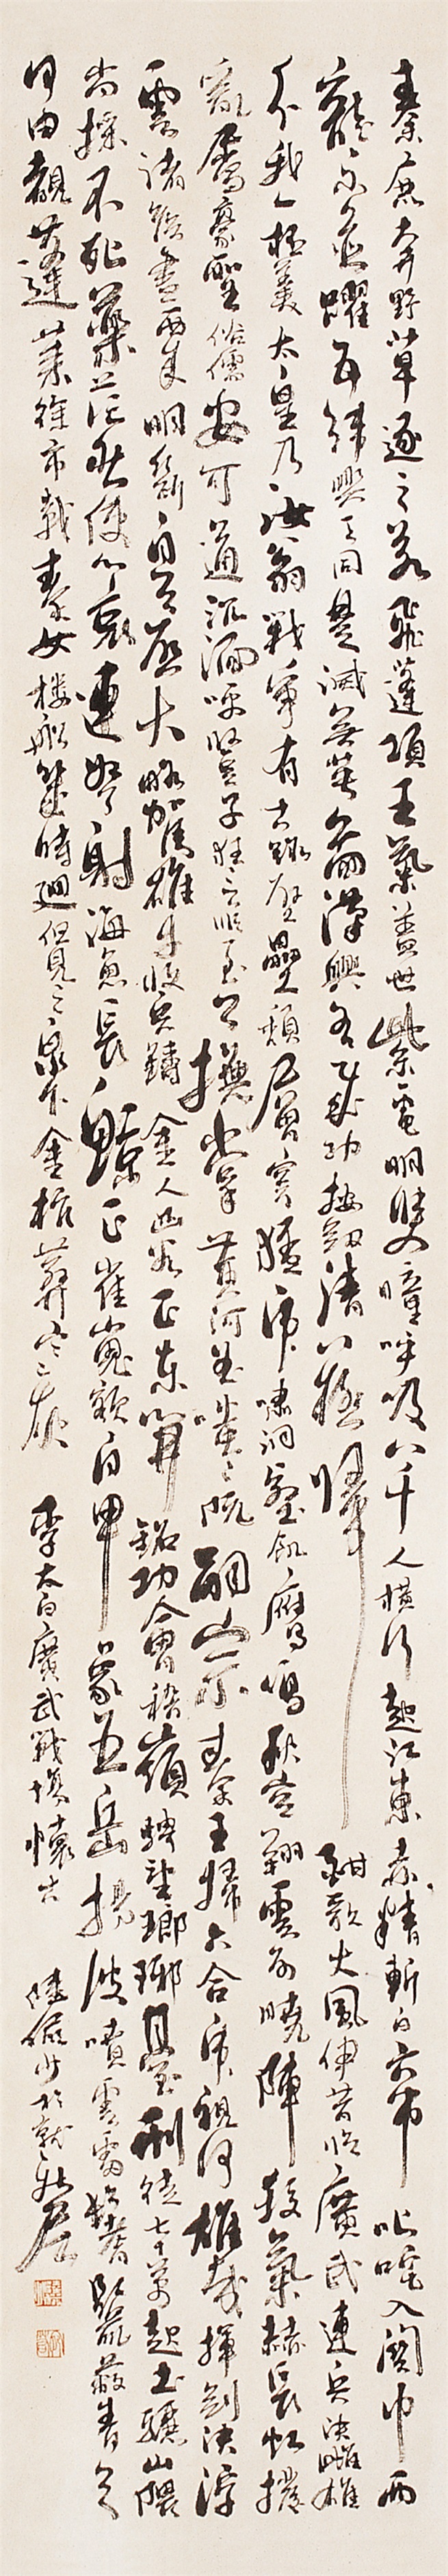 秦鹿奔野草逐之若飛蓬項王氣蓋世紫電明雙瞳呼吸八千人橫行起江東赤精斬白帝叱咤入關中兩
龍不並躍五緯與天同楚滅無英圖漢興有成功按劍清八極歸酣歌大風伊昔臨廣武連兵決雌雄
分我一杯羹太皇乃汝翁戰爭有古蹟壁壘頹層穹猛虎嘯洞壑飢鷹鳴秋空翔雲列曉陣殺氣赫長虹撥
亂屬豪聖俗儒安可通沉湎呼豎子狂言非至公撫掌黃河曲嗤嗤阮嗣宗秦王掃六合虎視何雄哉揮劍決浮
雲諸侯盡西來明斷自天啟大略駕雄才收兵鑄金人函谷正東開銘功會稽嶺騁望瑯琊臺刑徒七十萬起土驪山隈
尚採不死藥茫然使心哀連弩射海魚長鯨正崔嵬額鼻象五岳揚波噴雲雷鬐鬣蔽青天
何由觀蓬萊徐市載秦女樓船幾時迴但見三泉下金棺葬寒灰 李太白廣武戰場懷古 陸儼少於就新居